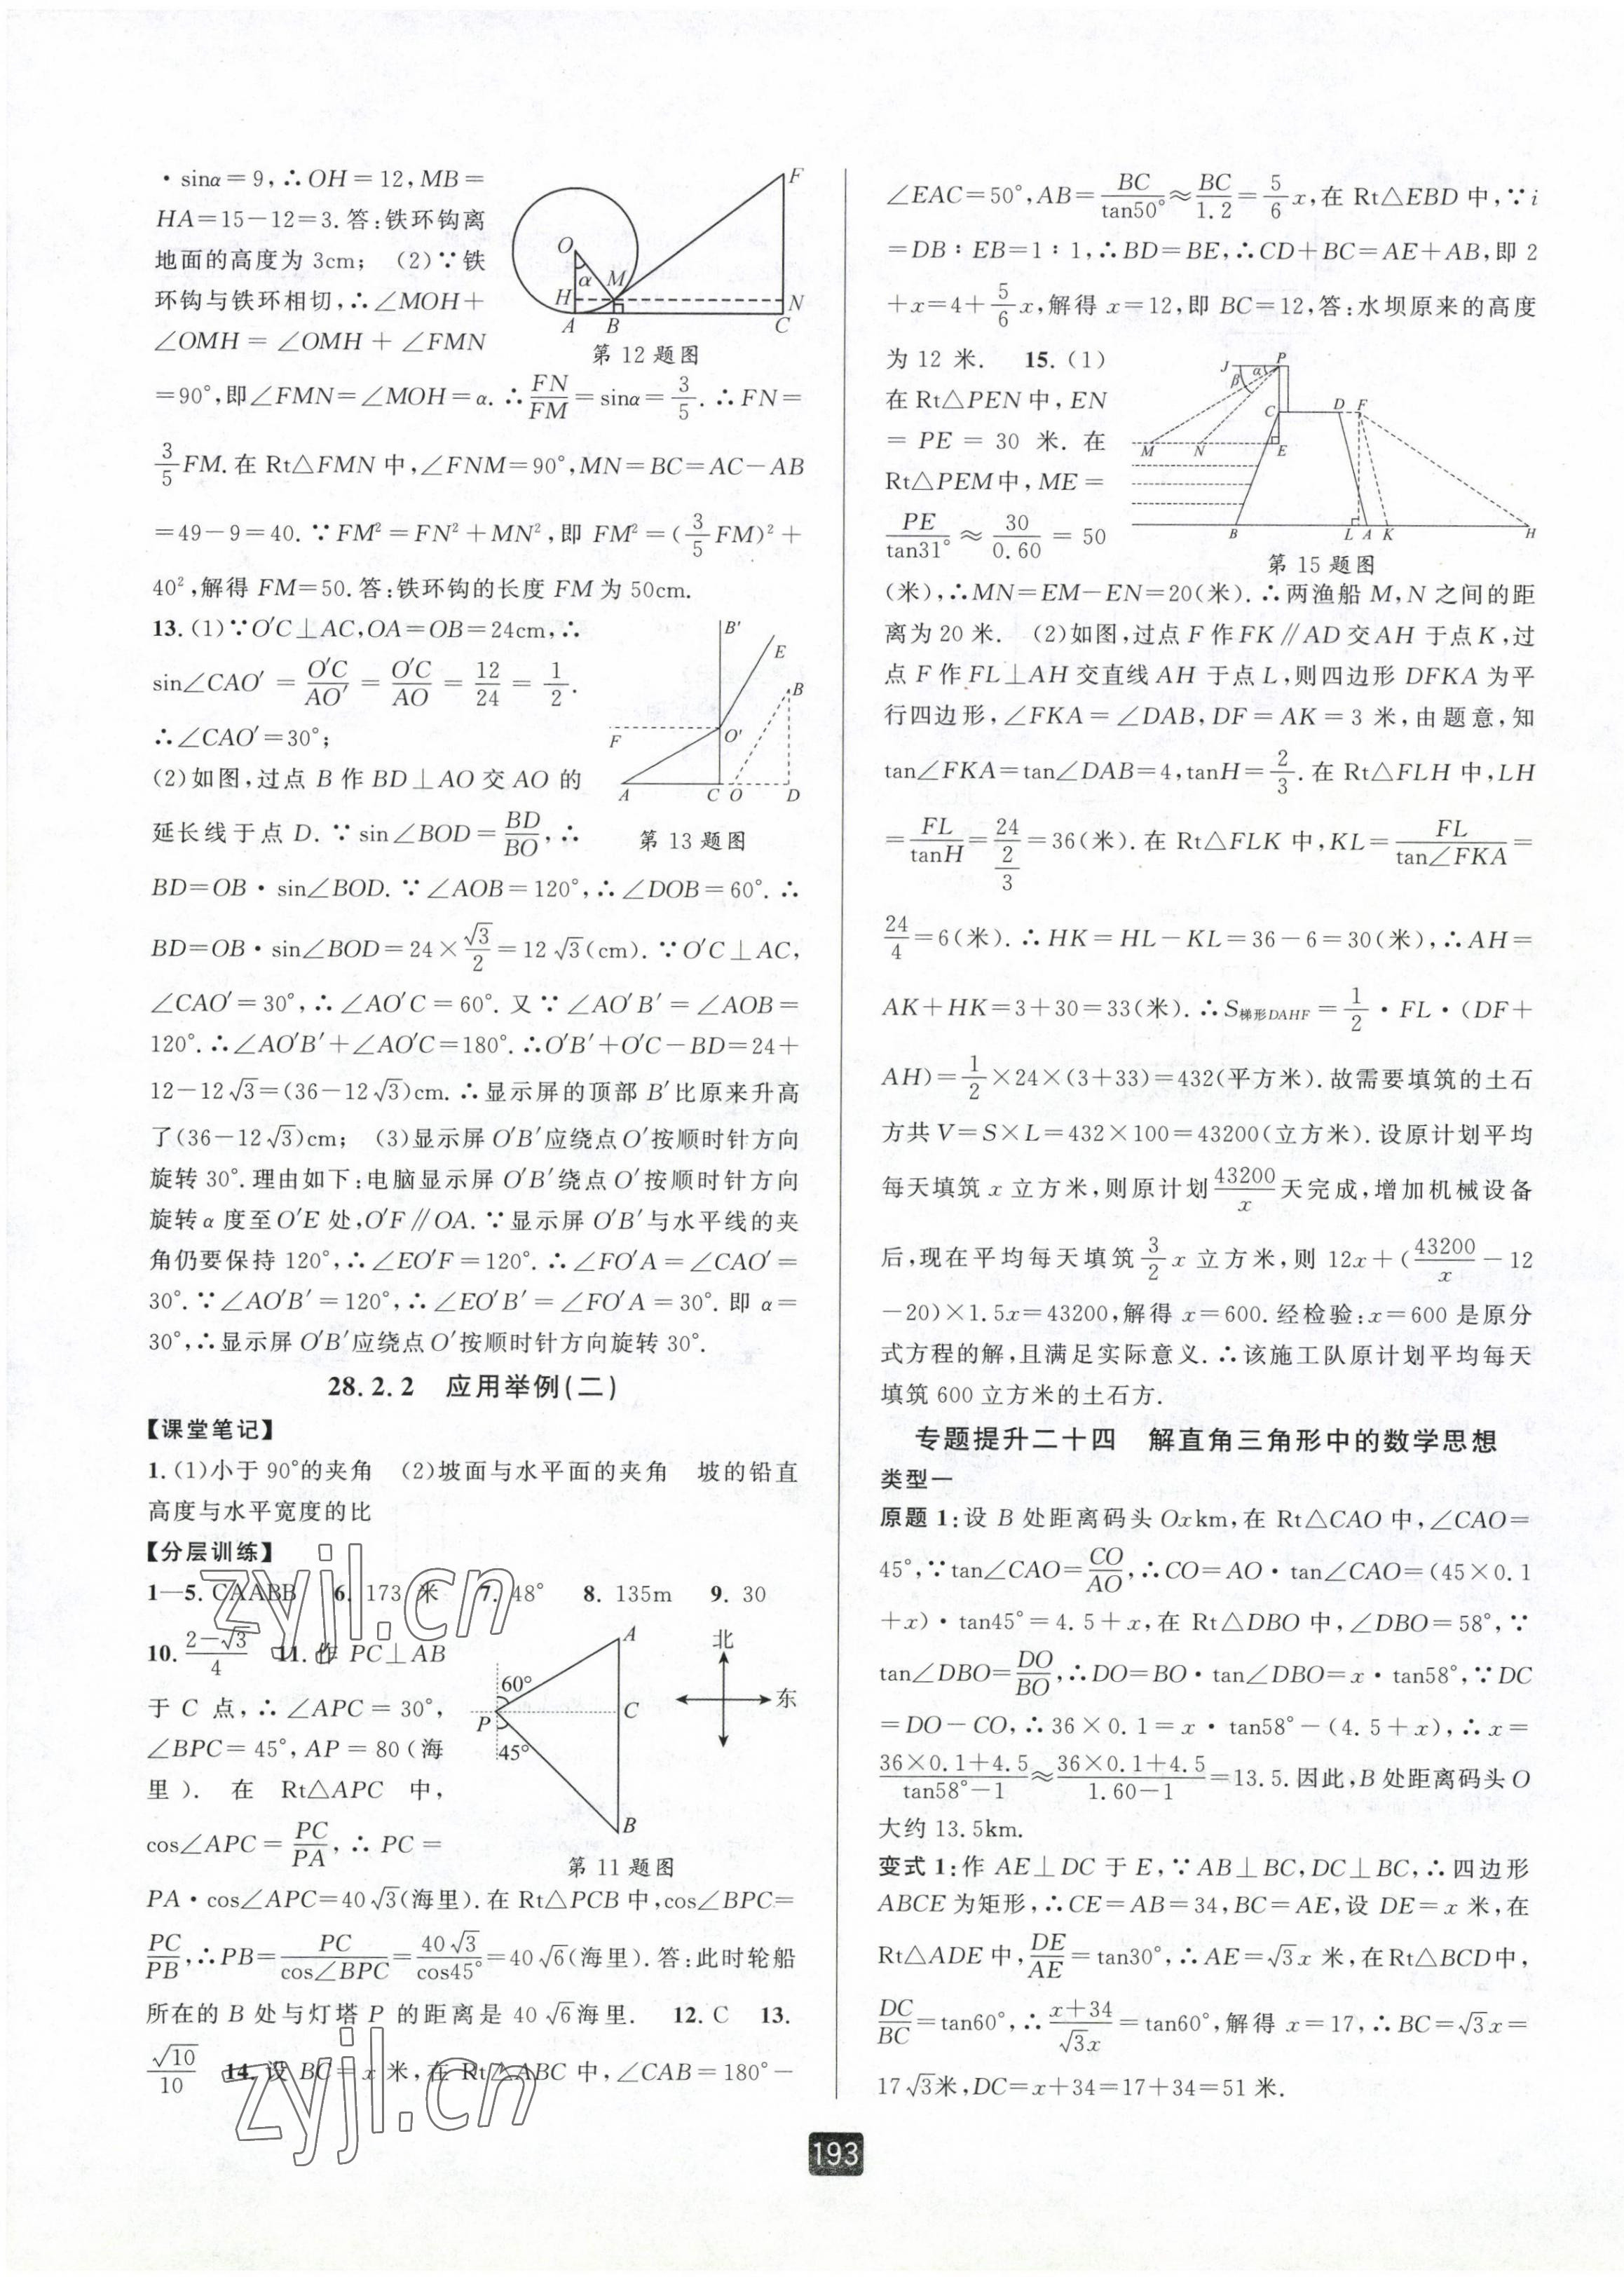 · sinα=9,∴OH=12,MB=
HA=15-12=3.答:铁环钩离
地面的高度为 3cm; (2)∵铁
环钩与铁环相切,∴∠MOH+
∠OMH = ∠OMH + ∠FMN
=90°,即∠FMN=∠MOH=α.∴FN/FM=sinα=3/5.∴FN=
3/5FM.在 Rt△FMN 中,∠FNM=90°,MN=BC=AC-AB
=49-9=40.∵FM²=FN²+MN²,即 FM²=(3/5FM)²+
40²,解得 FM=50.答:铁环钩的长度 FM 为 50cm.
O
α
M
H
A
B
F
N
C
第 12 题图
13.(1)∵O′C⊥AC,OA=OB=24cm,∴
sin∠CAO′ = O′C/AO′ = O′C/AO = 12/24 = 1/2.
∴∠CAO′=30°;
(2)如图,过点 B 作 BD⊥AO 交 AO 的
延长线于点 D.∵sin∠BOD=BD/BO,∴
B′
E
B
F
O′
A
C
O
D
第 13 题图
BD=OB·sin∠BOD.∵∠AOB=120°,∴∠DOB=60°.∴
BD=OB·sin∠BOD=24×√3/2=12√3(cm).∵O′C⊥AC,
∠CAO′=30°,∴∠AO′C=60°.又∵∠AO′B′=∠AOB=
120°.∴∠AO′B′+∠AO′C=180°.∴O′B′+O′C-BD=24+
12-12√3=(36-12√3)cm.∴显示屏的顶部 B′比原来升高
了(36-12√3)cm; (3)显示屏 O′B′应绕点 O′按顺时针方向
旋转 30°.理由如下:电脑显示屏 O′B′绕点 O′按顺时针方向
旋转 α 度至 O′E 处,O′F∥OA.∵显示屏 O′B′与水平线的夹
角仍要保持 120°,∴∠EO′F=120°.∴∠FO′A=∠CAO′=
30°.∵∠AO′B′=120°,∴∠EO′B′=∠FO′A=30°.即 α=
30°,∴显示屏 O′B′应绕点 O′按顺时针方向旋转 30°.
28.2.2 应用举例(二)
【课堂笔记】
1.(1)小于 90°的夹角 (2)坡面与水平面的夹角 坡的铅直
高度与水平宽度的比
【分层训练】
1—5. CAABB 6. 173 米 7. 48° 8. 135m 9. 30
10. (2-√3)/4 11. 作 PC⊥AB
于 C 点,∴∠APC=30°,
∠BPC=45°,AP=80(海
里). 在 Rt△APC 中,
cos∠APC=PC/PA,∴PC=
A
60°
P
C
45°
B
北
东
第 11 题图
PA·cos∠APC=40√3(海里).在 Rt△PCB 中,cos∠BPC=
PC/PB,∴PB=PC/cos∠BPC=40√3/cos45°=40√6(海里).答:此时轮船
所在的 B 处与灯塔 P 的距离是 40√6海里. 12. C 13.
√10/10 14. 设 BC=x 米,在 Rt△ABC 中,∠CAB=180°-
∠EAC=50°,AB=BC/tan50°≈BC/1.2=5/6x,在 Rt△EBD 中,∵i
=DB:EB=1:1,∴BD=BE,∴CD+BC=AE+AB,即 2
+x=4+5/6x,解得 x=12,即 BC=12,答:水坝原来的高度
为 12 米. 15.(1)
在 Rt△PEN 中,EN
= PE = 30 米. 在
Rt△PEM中,ME=
PE/tan31° ≈ 30/0.60 = 50
J
P
α
β
C
D
F
M
N
E
B
L
A
K
H
第 15 题图
(米),∴MN=EM-EN=20(米).∴两渔船 M,N 之间的距
离为 20 米. (2)如图,过点 F 作 FK∥AD 交 AH 于点 K,过
点 F 作 FL⊥AH 交直线 AH 于点 L,则四边形 DFKA 为平
行四边形,∠FKA=∠DAB,DF=AK=3 米,由题意,知
tan∠FKA=tan∠DAB=4,tanH=2/3.在 Rt△FLH 中,LH
=FL/tanH=24/(2/3)=36(米).在 Rt△FLK 中,KL=FL/tan∠FKA=
24/4=6(米).∴HK=HL-KL=36-6=30(米),∴AH=
AK+HK=3+30=33(米).∴S梯形DAHF=1/2·FL·(DF+
AH)=1/2×24×(3+33)=432(平方米).故需要填筑的土石
方共 V=S×L=432×100=43200(立方米).设原计划平均
每天填筑 x 立方米,则原计划43200/x天完成,增加机械设备
后,现在平均每天填筑3/2x 立方米,则 12x+(43200/x-12
-20)×1.5x=43200,解得 x=600.经检验:x=600 是原分
式方程的解,且满足实际意义.∴该施工队原计划平均每天
填筑 600 立方米的土石方.
专题提升二十四 解直角三角形中的数学思想
类型一
原题 1:设 B 处距离码头 Oxkm,在 Rt△CAO 中,∠CAO=
45°,∵tan∠CAO=CO/AO,∴CO=AO·tan∠CAO=(45×0.1
+x)·tan45°=4.5+x,在 Rt△DBO 中,∠DBO=58°,∵
tan∠DBO=DO/BO,∴DO=BO·tan∠DBO=x·tan58°,∵DC
=DO-CO,∴36×0.1=x·tan58°-(4.5+x),∴x=
(36×0.1+4.5)/(tan58°-1)≈(36×0.1+4.5)/(1.60-1)=13.5.因此,B 处距离码头 O
大约 13.5km.
变式 1:作 AE⊥DC 于 E,∵AB⊥BC,DC⊥BC,∴四边形
ABCE 为矩形,∴CE=AB=34,BC=AE,设 DE=x 米,在
Rt△ADE 中,DE/AE=tan30°,∴AE=√3x 米,在Rt△BCD中,
DC/BC=tan60°,∴(x+34)/√3x=tan60°,解得 x=17,∴BC=√3x=
17√3米,DC=x+34=17+34=51 米.
zyjl.cn
zyjl.cn
193